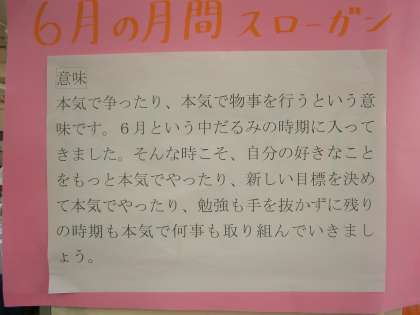 6月の月間スローガン
意味
本気で争ったり、本気で物事を行うという意
味です。６月という中だるみの時期に入って
きました。そんな時こそ、自分の好きなこと
をもっと本気でやったり、新しい目標を決め
て本気でやったり、勉強も手を抜かずに残り
の時期も本気で何事も取り組んでいきまし
ょう。